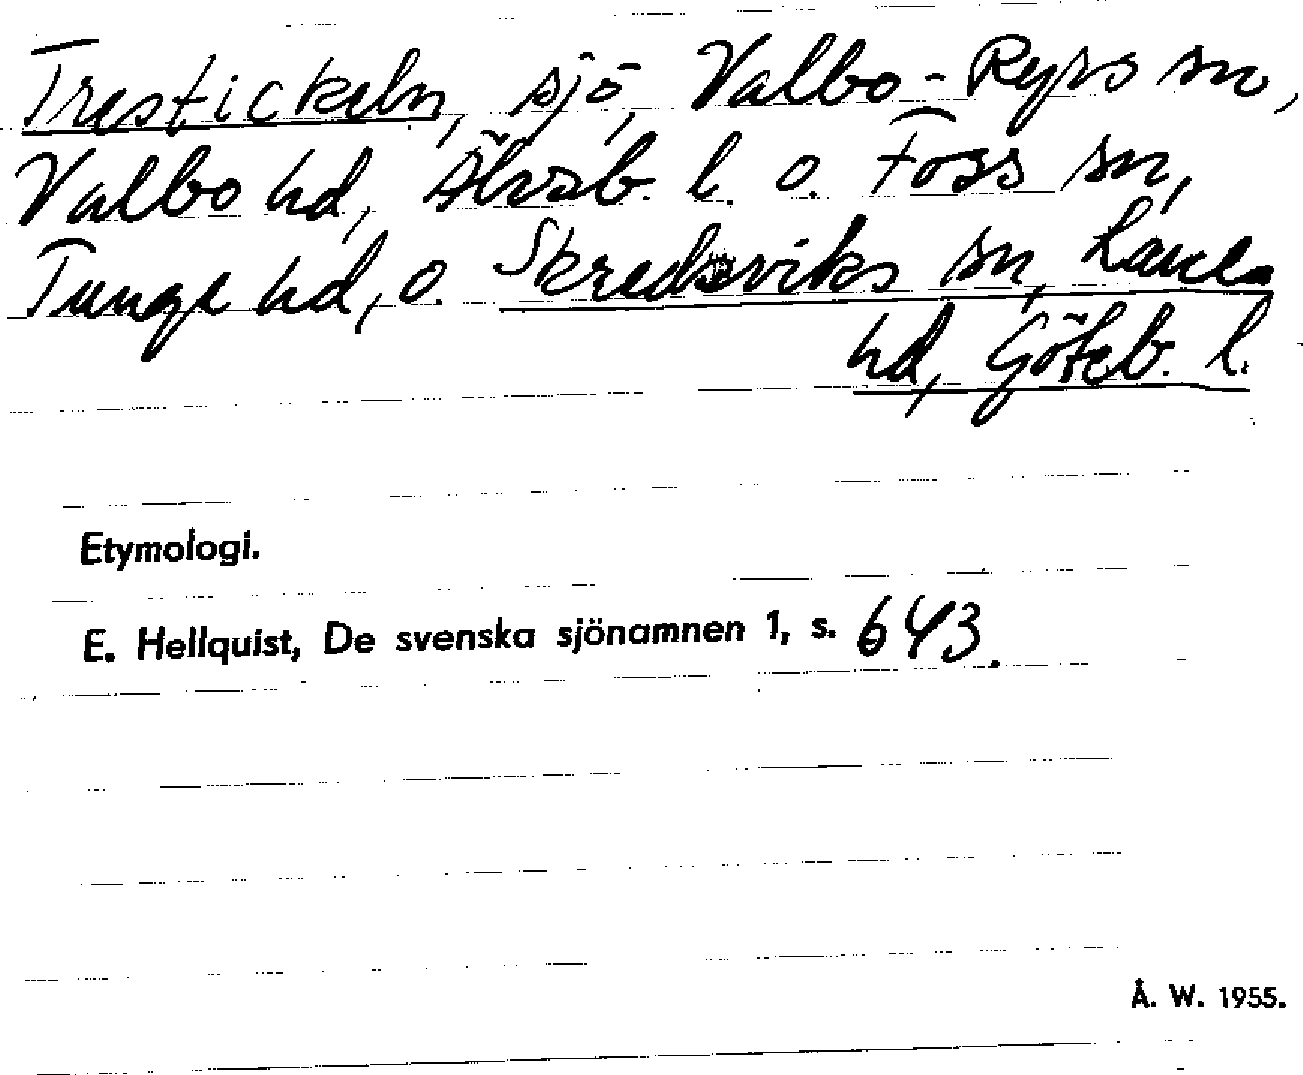 Trestickeln, sjö, Valbo-Ryrs sn,
Valbo hd, Älvsb. l. o. Foss sn,
Tunge hd, o. Skredsviks sn, Lane
hd, Göteb. l.
Etymologi.
E. Hellquist, De svenska sjönamnen 1, s. 643.
Å. W. 1955.